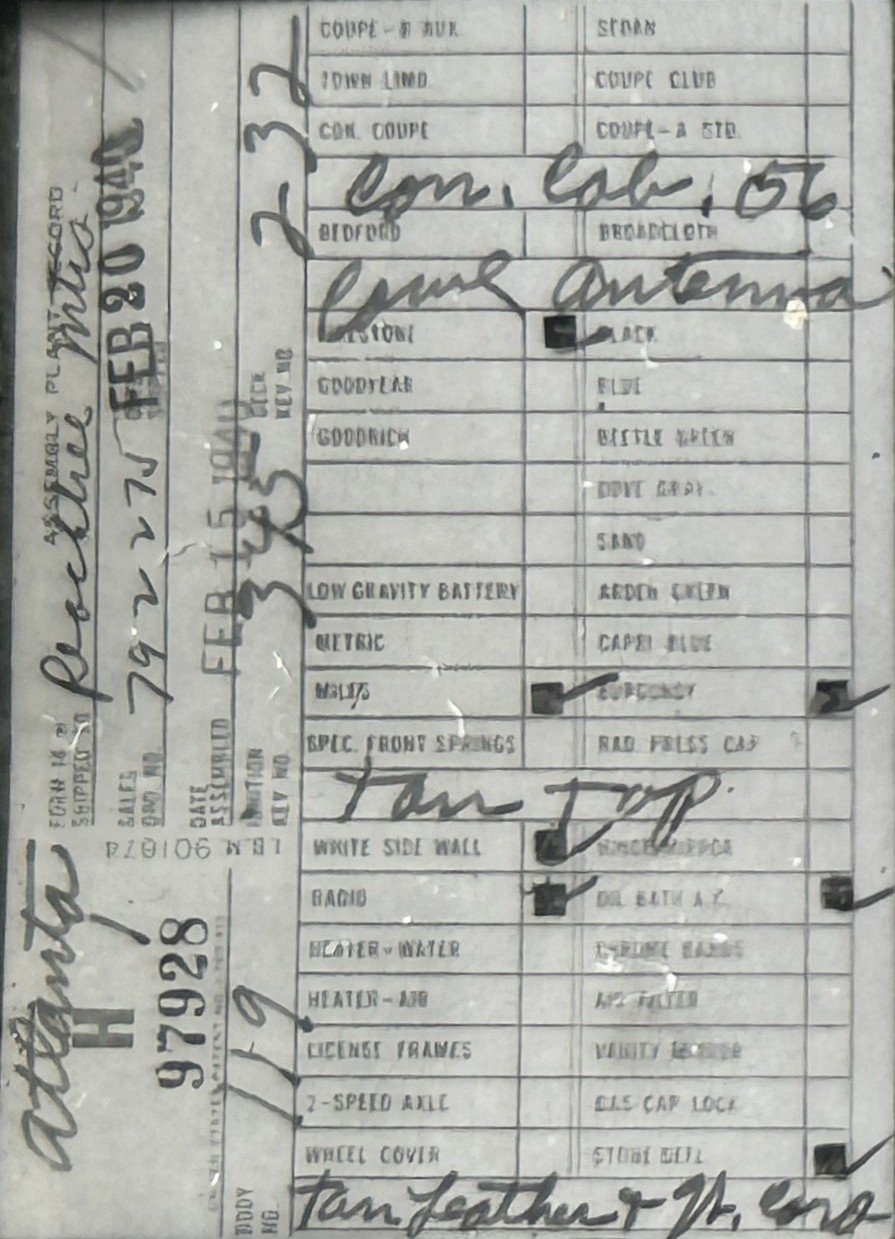 COUPE-B AUX. SEDAN
TOWN LIMO COUPE CLUB
CON. COUPE COUPE-A STD.
Con. Cab. 56
BEDFORD BROADCLOTH
Cowl Antenna
FIRESTONE BLACK
GOODYEAR BLUE
GOODRICH BEETLE GREEN
DOVE GRAY
SAND
LOW GRAVITY BATTERY ARDEN GREEN
METRIC CAPRI BLUE
MILES BURGUNDY
SPEC. FRONT SPRINGS RAD PRESS CAP
Tan Top.
WHITE SIDE WALL
RADIO OIL BATH A.C.
HEATER-WATER CHROME BANDS
HEATER-AIR AIR FILTER
LICENSE FRAMES VANITY MIRROR
2-SPEED AXLE GAS CAP LOCK
WHEEL COVER STONE DEFL
Tan Leather & Cord
ASSEMBLY PLANT RECORD
SHIPPED TO Peachtree Mtrs.
SALES ORD NO. 792275 FEB 20 1940
DATE ASSEMBLED FEB 15 1940
IGNITION KEY NO. 345 DECK KEY NO. 2-32
LBM 901074
Atlanta
H 97928
BODY NO. 119